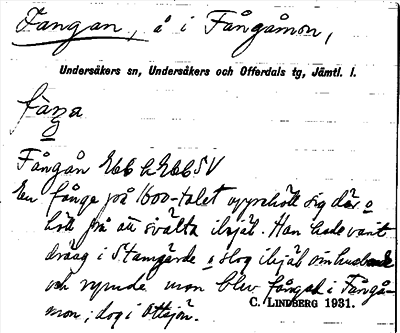 Fångan, å i Fångåmon,
Undersåkers sn, Undersåkers och Offerdals tg, Jämtl. l.
Fångån Ebb h Ebb SV
En fånge på 1600-talet uppehöll sig där o
höll på att svälta ihjäl. Han hade varit
dräng i Stamgärde o slog ihjäl sin husbonde
och rymde men blev fångad i Fångå-
mon; dog i Ottsjön.
C. LINDBERG 1931.